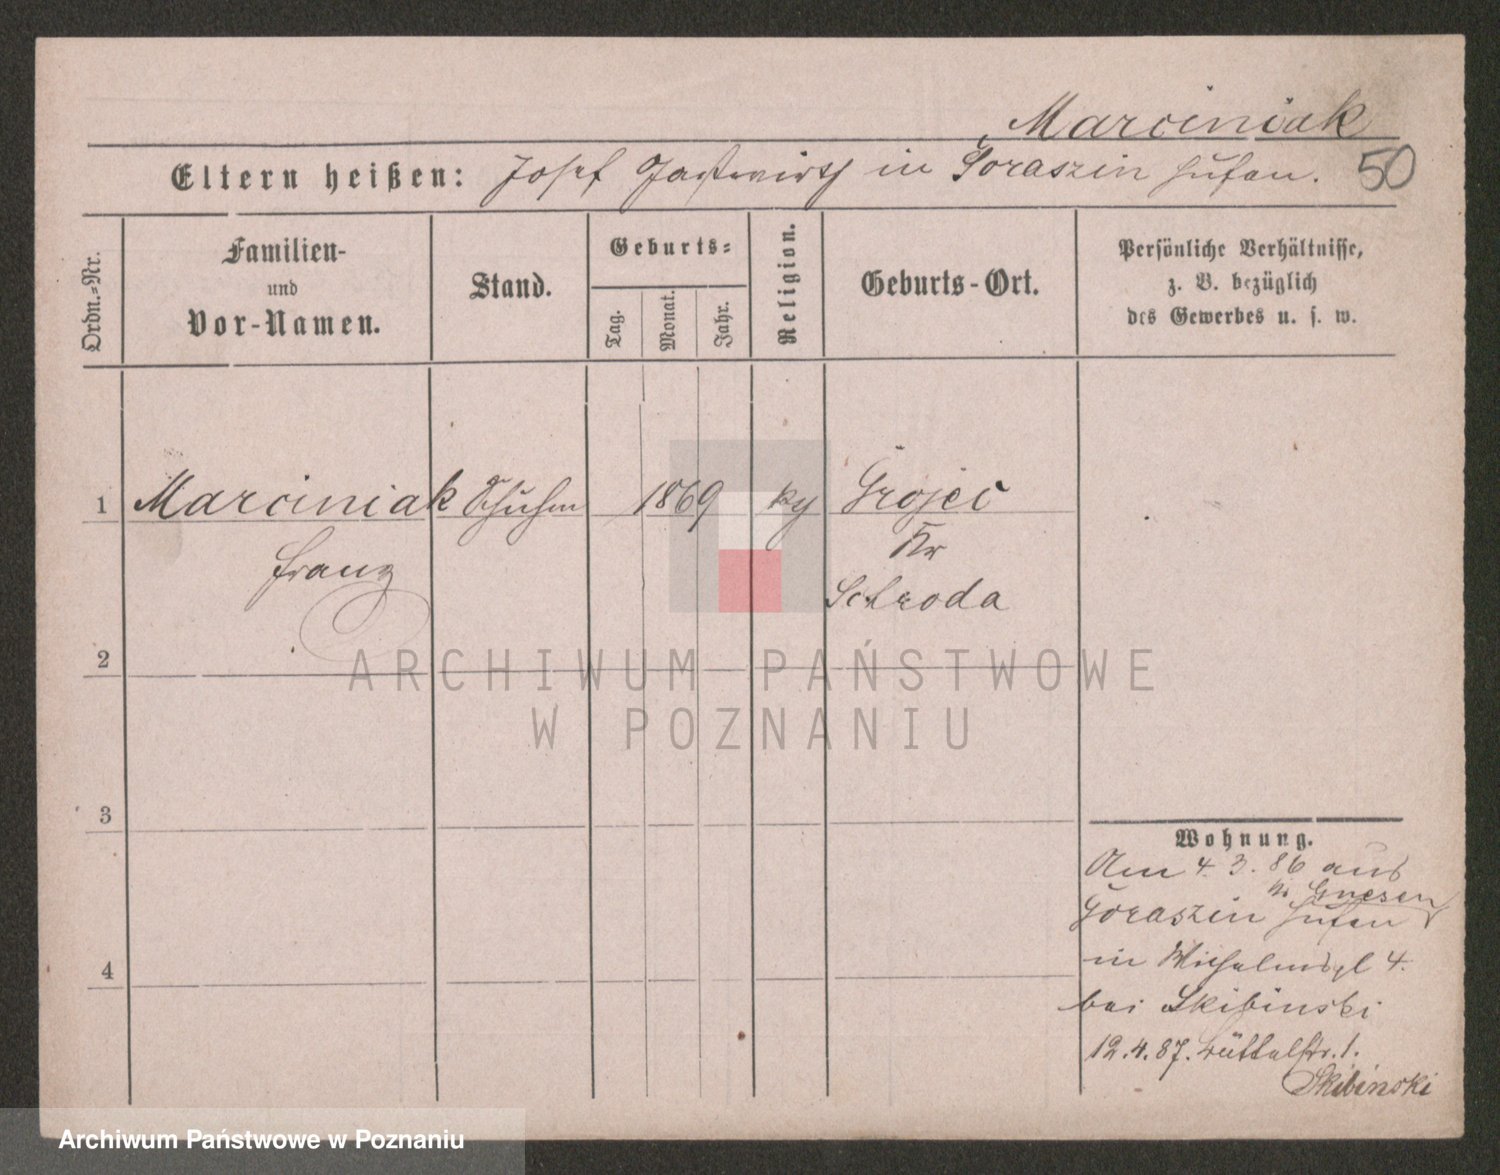 Marciniak
Eltern heißen: Josef Gastwirth in Goraszin Hufen.
50
Ordn.-Nr.
Familien-
und
Vor-Namen.
Stand.
Geburts-
Tag.
Monat.
Jahr.
Religion.
Geburts-Ort.
Persönliche Verhältnisse,
z. B. bezüglich
des Gewerbes u. s. w.
1 Marciniak Schuhm 1869 Grojec
Franz Kr
Schroda
2
3
4
ARCHIWUM PAŃSTWOWE
W POZNANIU
Wohnung.
Am 4. 3. 86 aus
Kr Gnesen
Goraszin Hufen
in Wilhelmspl 4.
bei Skibinski
12.4.87. Büttelstr. 1.
Skibinski
Archiwum Państwowe w Poznaniu